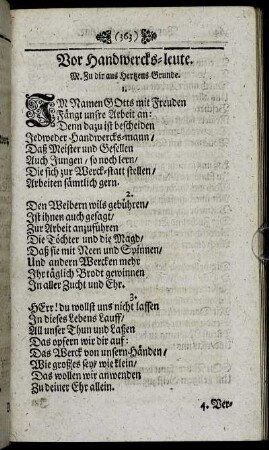 (363)
Vor Handwercks-leute.
M. Zu dir aus Hertzens Grunde.
1.
IM Namen GOtts mit Freuden
Fängt unsre Arbeit an:
Denn dazu ist bescheiden
Jedweder Handwercks-mann/
Daß Meister und Gesellen
Auch Jungen/ so noch lern/
Die sich zur Werck-statt stellen/
Arbeiten sämtlich gern.
2.
Den Weibern wils gebühren/
Ist ihnen auch gesagt/
Zur Arbeit anzuführen
Die Töchter und die Magd/
Daß sie mit Neen und Spinnen/
Und andern Wercken mehr
Ihr täglich Brodt gewinnen
In aller Zucht und Ehr.
3.
HErr! du wollst uns nicht lassen
In dieses Lebens Lauff/
All unser Thun und Laßen
Das opfern wir dir auf:
Das Werck von unsern Händen/
Wie großes sey/ wie klein/
Das wollen wir anwenden
Zu deiner Ehr allein.
4. Ver-